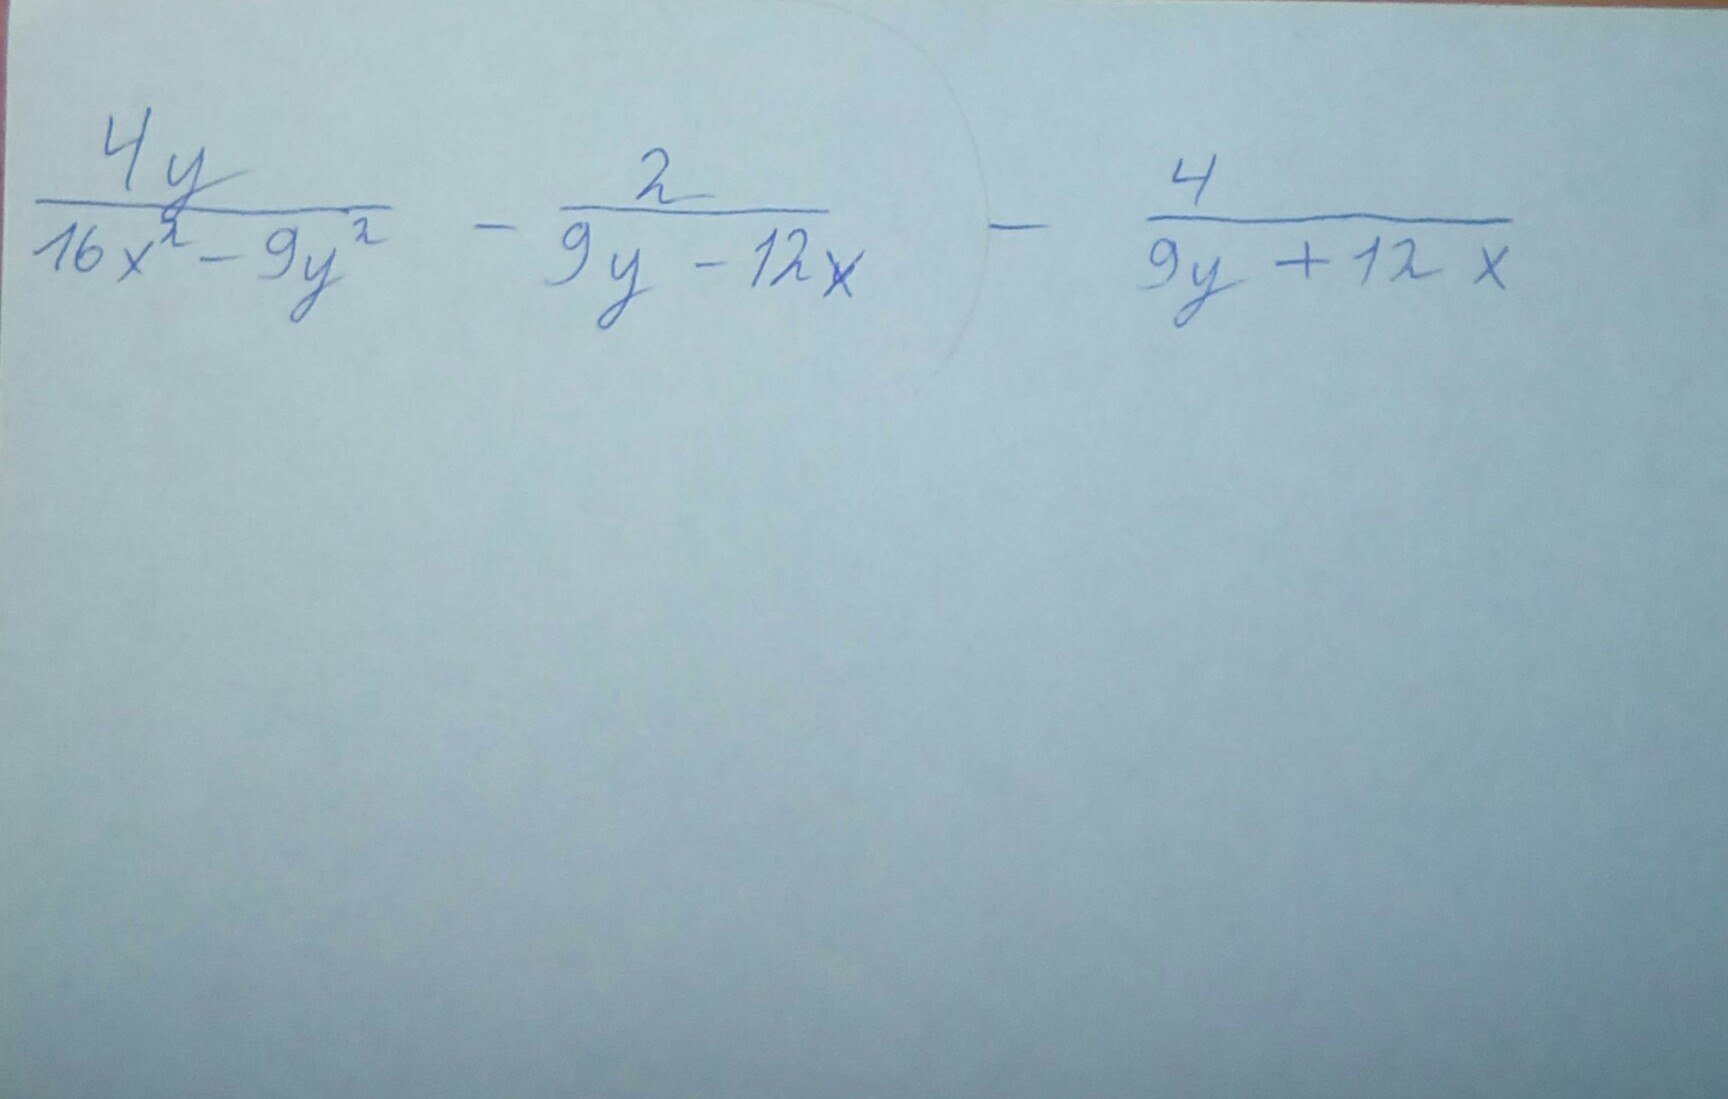 4y/(16x² - 9y²) - 2/(9y - 12x) - 4/(9y + 12x)